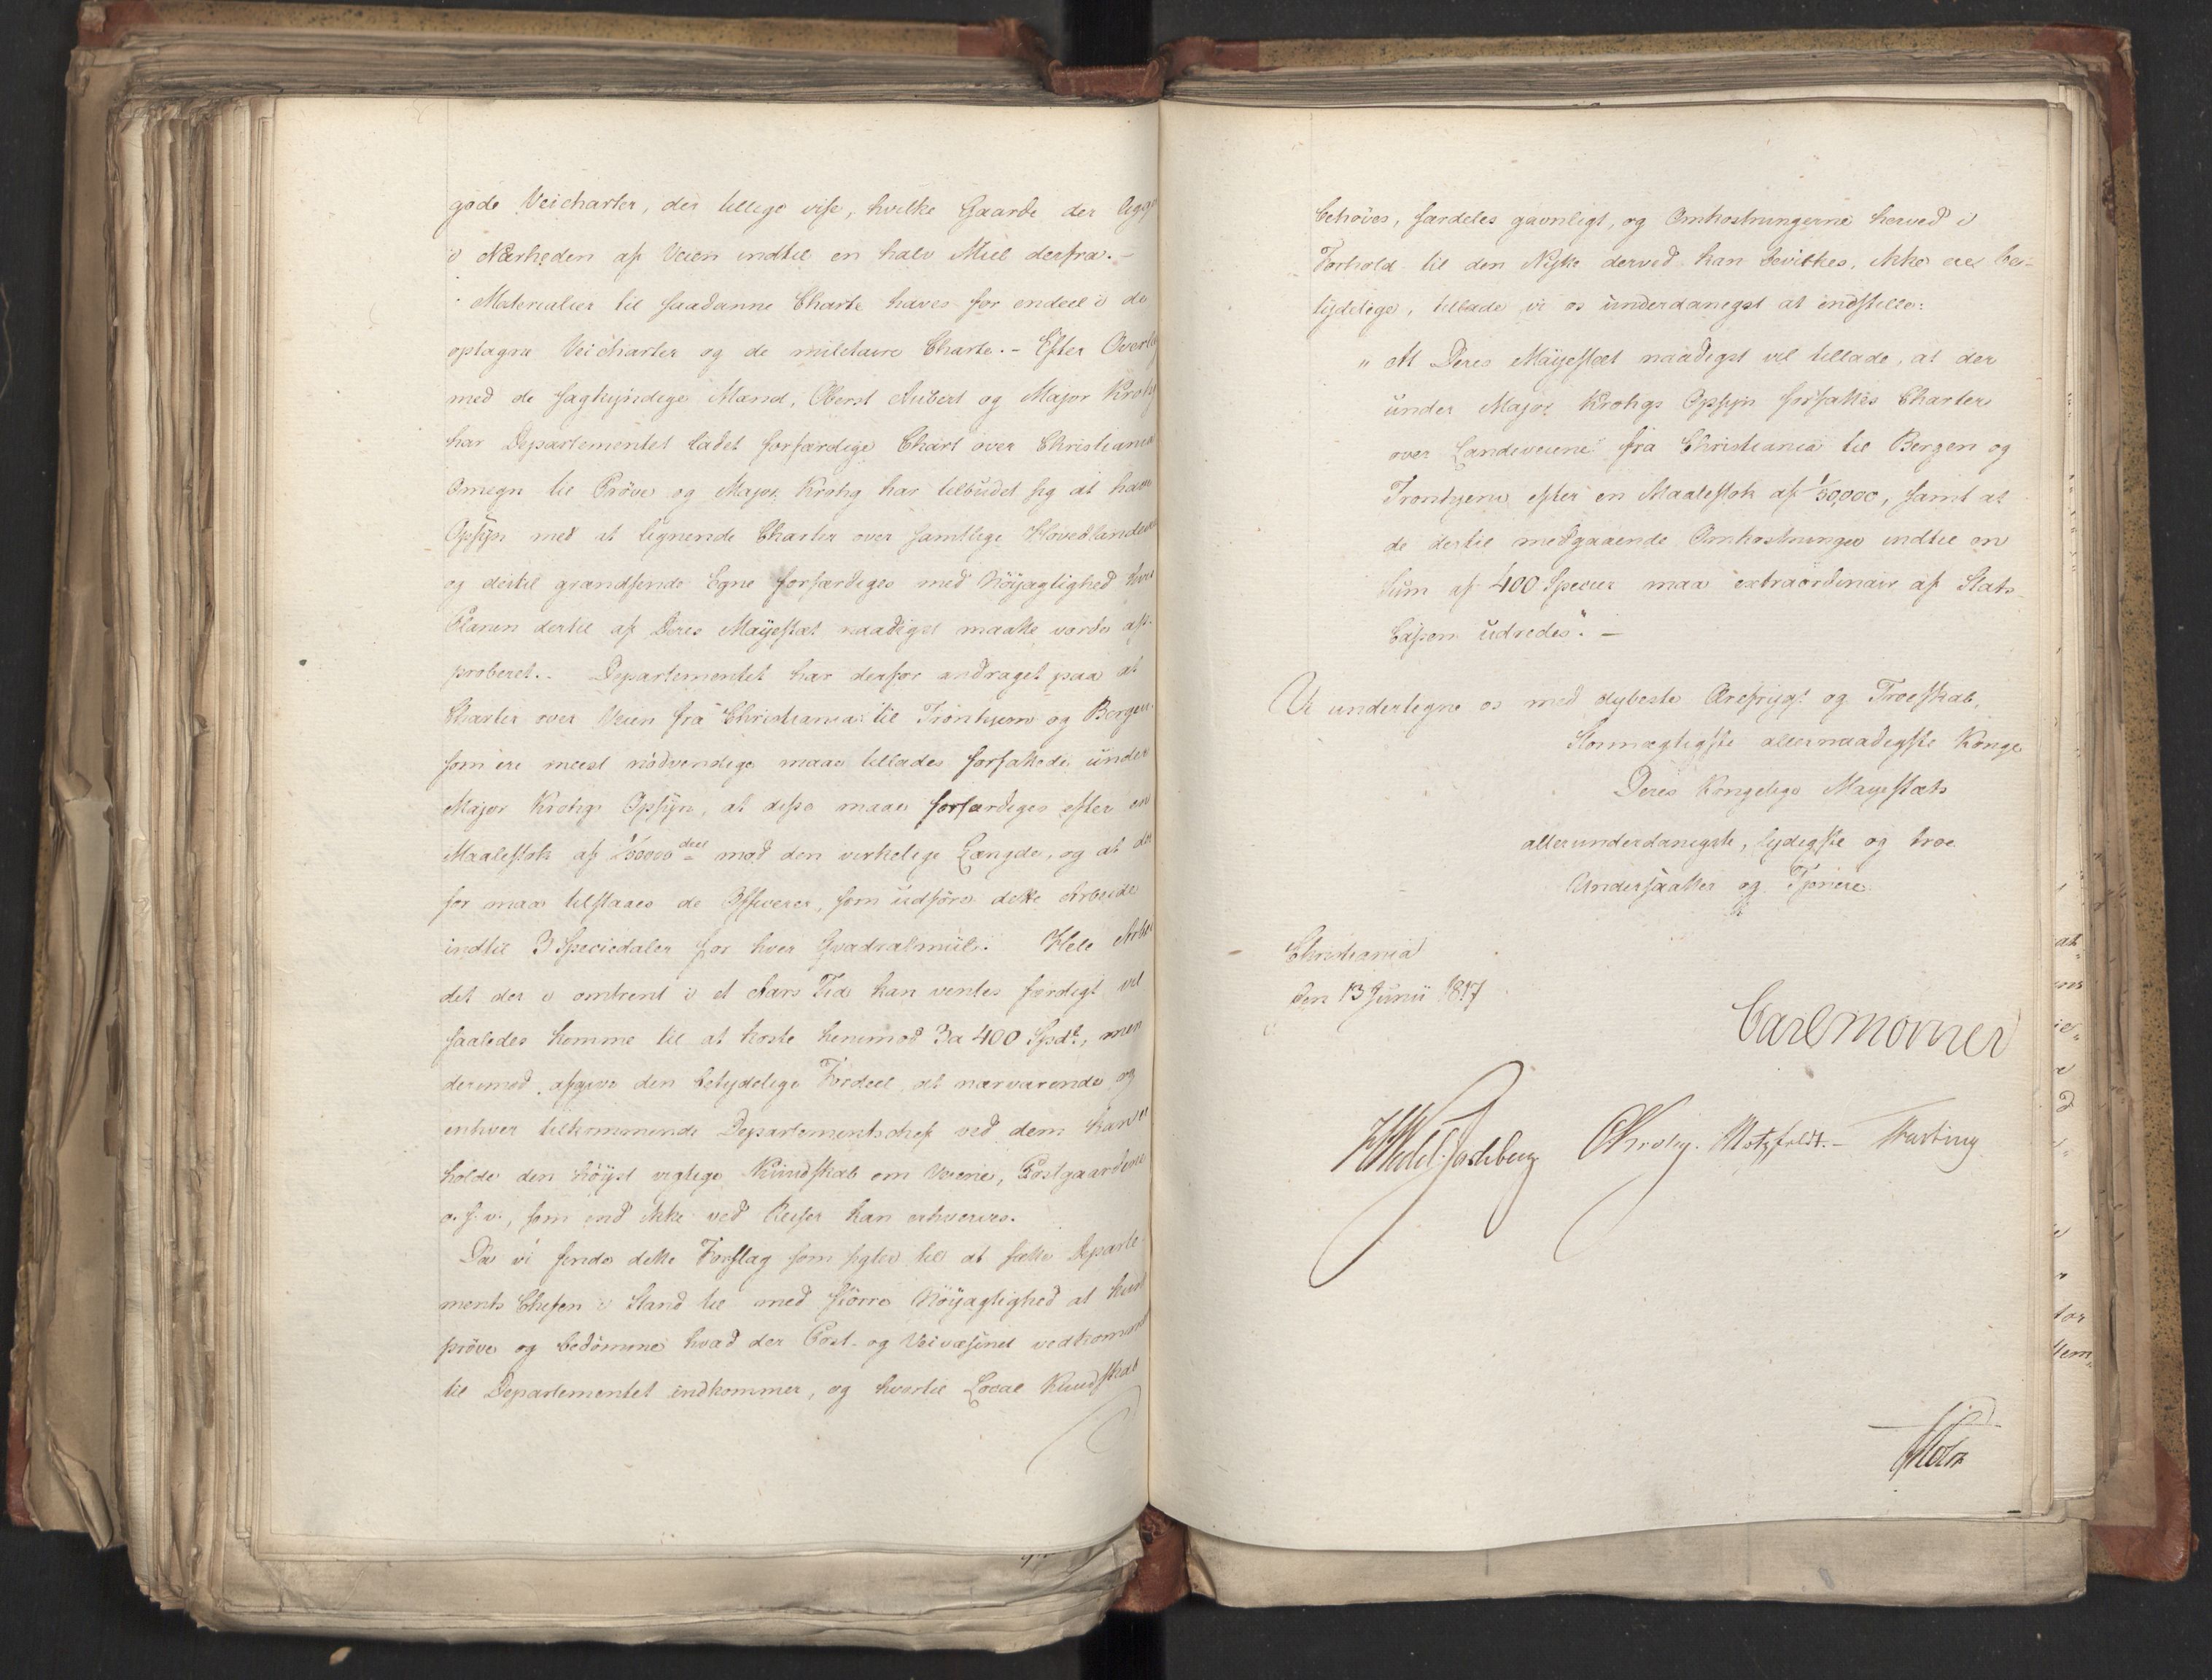 gode Veicharter, der tillige vise, hvilke Gaarde der ligge
i Nærheden af Veien indtil en halv Miil derfra.-
Materialier til saadanne Charte haves for endeel i de
optagne Veicharter og de militaire Charte.- Efter Overlæg
med de sagkyndige Mænd, Oberst Aubert og Major Krohg
har Departementet ladet forfærdige Chart over Christiania
Omegn til Pröve og Major Krohg har tilbudet sig at have
Opsyn med at lignende Charter over samtlige Hovedlandeveie
og dertil grændsende Egne forfærdiges med Nöyagtighed hvis
Planen dertil af Deres Mayestæt naadigst maatte vorde ap-
proberet.. Departementet har derfor andraget paa at
Charter over Veien fra Christiania til Trönhjem og Bergen
som ere meest nödvendige maae tillades forfattede under
Major Krohgs Opsyn, at disse maae forfærdiges efter en
Maalestok af 1/50000 deel mod den virkelige Længde, og at der
for maa tilstaaes de Officerer, som udföre dette Arbeide
indtil 3 Speciedaler for hver Qvadratmiil. Hele Arbei
det der i omtrent i et Aars Tid kan ventes færdigt vil
saaledes komme til at koste henimod 3 a 400 Spdr, men
derimod afgive den betydelige Fordeel at nærværende og
enhver tilkommende Departementschef ved dem kan er
holde den höyst vigtige Kundskab om Veiene, Postgaardene
o. s. v., som end ikke ved Reiser kan erhverves.
Da vi finde dette Forslag som sigter til at sætte Departe
ments Chefen i Stand til med större Nöyagtighed at kunne
pröve og bedömme hvad der Post- og Veivæsenet vedkommende
til Departementet indkommer, og hvortil Local Kundskab
behöves, særdeles gavnligt, og Omkostningerne herved i
Forhold til den Nytte derved kan bevirkes, ikke ere be-
tydelige, tillade vi os underdanigst at indstille:
" At Deres Mayestæt naadigst vil tillade, at der
under Major Krohgs Opsyn forfattes Charter
over Landeveiene fra Christiania til Bergen og
Tronhjem efter en Maalestok af 1/50,000, samt at
de dertil medgaaende Omkostninger indtil en
Sum af 400 Specier maa extraordinair af Stats-
Cassen udredes". -
Vi undertegne os med dybeste Ærefrygt og Troeskab,
Stormægtigste allernaadigste Konge
Deres Kongelige Mayestæts
allerunderdanigste, lydigste og troe
Undersaatter og Tjenere
Christiania
den 13 Junii 1817
Carl Mörner
HWedel Jarlsberg CKrohg. Motzfeldt.- Treschow
Holst